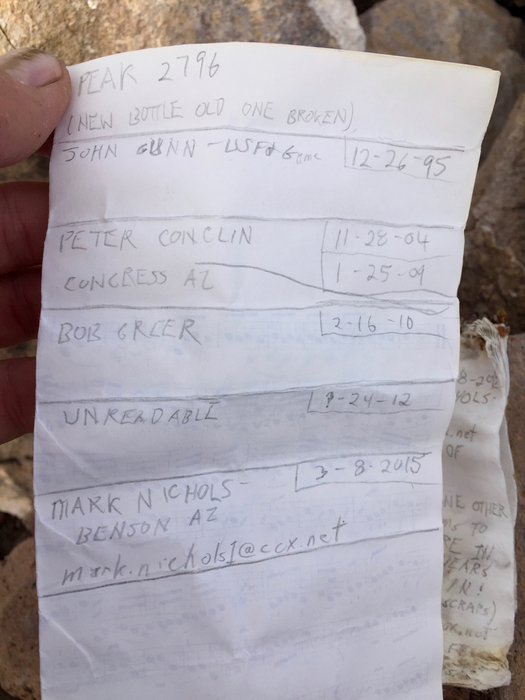 PEAK 2796
(NEW BOTTLE OLD ONE BROKEN)
JOHN GUNN - USF& Game 12-26-95
PETER CONCLIN 11-28-04
CONGRESS AZ 1-25-09
BOB GREER 2-16-10
UNREADABLE 9-24-12
MARK NICHOLS - 3-8-2015
BENSON AZ
mark.nichols1@ccx.net
HOLS-
.net
OF
NE OTHER
TO
PE IN
EARS
IN!
SCRAPS)